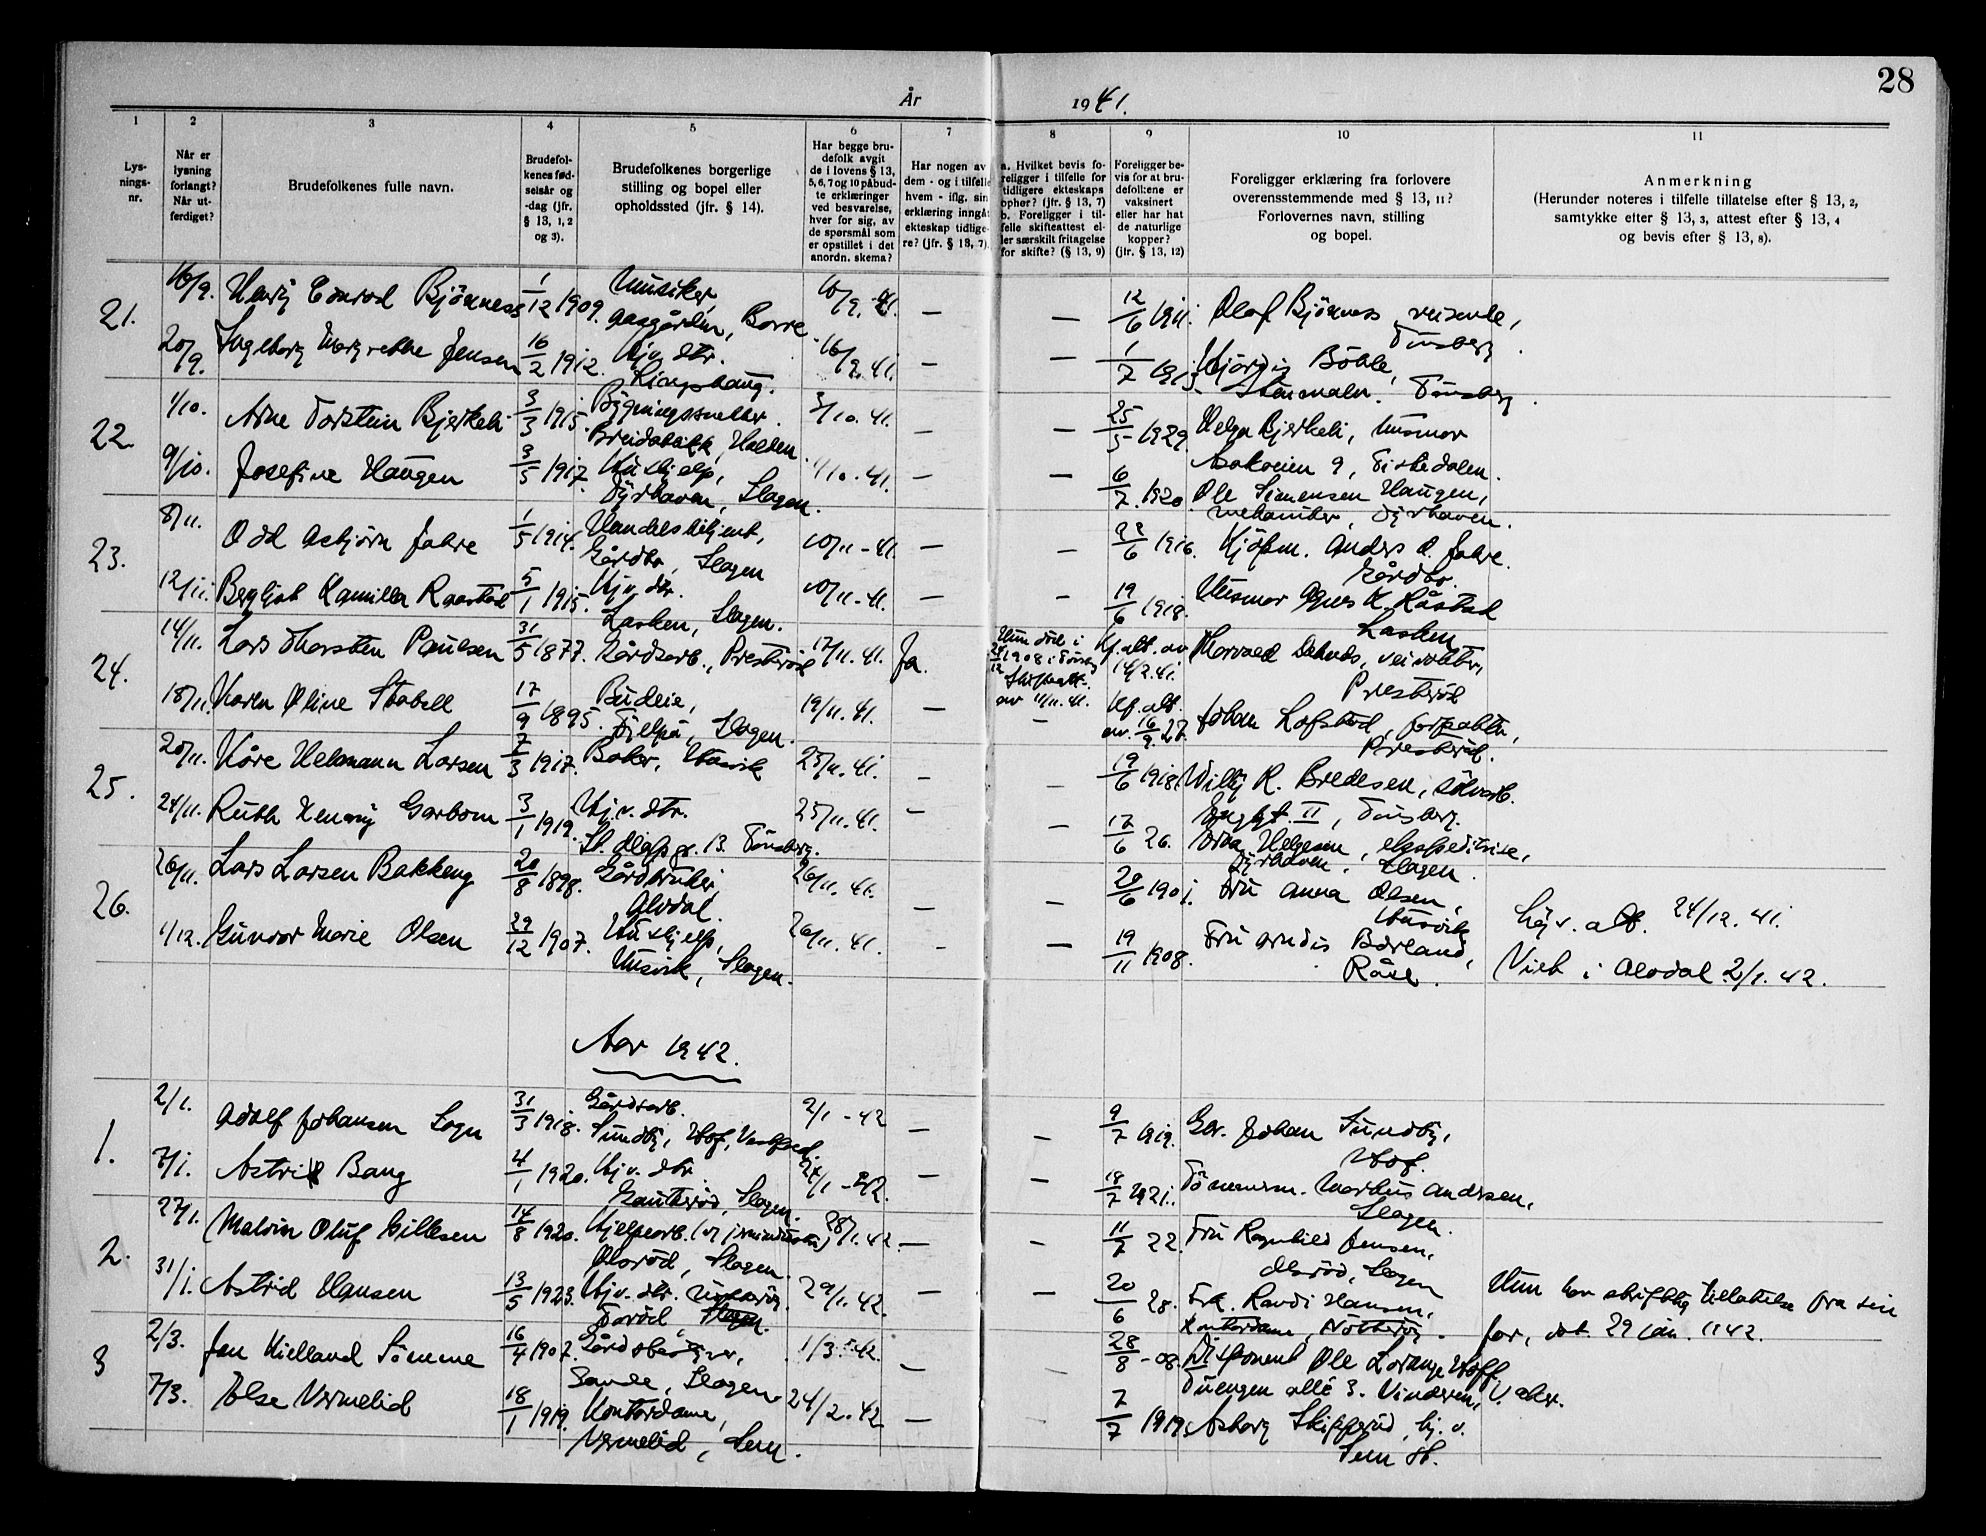 28
År 1941.
1 2 3 4 5 6 7 8 9 10 11
Lysnings-nr.
Når er lysning forlangt? Når utferdiget?
Brudefolkenes fulle navn.
Brudefolkenes fødselsår og -dag (jfr. § 13, 1, 2 og 3).
Brudefolkenes borgerlige stilling og bopel eller opholdssted (jfr. § 14).
Har begge brudefolk avgit de i lovens § 13, 5, 6, 7 og 10 påbudte erklæringer ved besvarelse, hver for sig, av de spørsmål som er opstillet i det anordn. skema?
Har nogen av dem - og i tilfelle hvem - iflg. sin erklæring inngåt ekteskap tidligere? (jfr. § 13, 7).
a. Hvilket bevis foreligger i tilfelle for tidligere ekteskaps ophør? (jfr. § 13, 7) b. Foreligger i tilfelle skifteattest eller særskilt fritagelse for skifte? (§ 13, 9)
Foreligger bevis for at brudefolkene er vaksinert eller har hat de naturlige kopper? (jfr. § 13, 12)
Foreligger erklæring fra forlovere overensstemmende med § 13, 11? Forlovernes navn, stilling og bopel.
Anmerkning (Herunder noteres i tilfelle tillatelse efter § 13, 2, samtykke efter § 13, 3, attest efter § 13, 4 og bevis efter § 13, 8).
21. 16/9. Conrad Bjönness 1/12 1909. Musiker, Aasgården, Borre 16/9. 41. — — 12/6 1911. Olaf Bjönness, reisende, Tönsberg.
20/9. Ingeborg Margrethe Jensen 16/2 1912. Hjv. dtr. Ringshaug. 16/9. 41. — — 1/7 Hjördis Böhle, Tönsberg.
22. 1/10. Arne Torstein Bjerkeli 3/3 1915. Breidablikk, Halden. 3/10. 41. — — 25/5 1929. Helga Bjerkeli, Husmor
9/10. Josefine Haugen 3/5 1917. Hushjelp, Dyrhaven, Slagen. 1/10. 41. — — 6/7. 1920. Ole Simensen Haugen, mekaniker, Dyrhaven.
23. 8/11. Odd Asbjörn Jahre 1/5 1914. Handelsbetjent, Gårdbo, Slagen 10/11 - 41. — — 22/6 1916. Kjöpm. Anders O. Jahre. Gårdbo.
12/11. Bergljot Kamilla Raastad 5/1 1915. Hjv. dtr. Lasken, Slagen. 10/11 - 41. — — 19/6 1918. Husmor Agnes K. Råstad Lasken
24. 14/11. Lars Thorsten Paulsen 31/5 1877. Gårdsarb., Presteröd 17/11. 41. Ja. Hun död i 1908 i Tönsberg Skifteatt. av 11/11. 41. Kf. att. av 14/2. 41. Presteröd
18/11. Karen Oline Stabell 17/9 1895. Budeie, Slagen. 19/11. 41. — — Kf. att. av. 16/9. 27. Johan Lofstad, forpakter, Presteröd.
25. 20/11. Kåre Helmann Larsen 7/3 1917. Baker, Husvik 25/11. 41. — — 19/6 1918. Willy R. Bredesen, sölvarb. II, Tönsberg.
24/11. Ruth Henny Garbom 3/1 1919. Hj. v. dtr. St. Olafs gr. 13. Tönsberg. 25/11. 41. — — 17/6 26. Helgesen, ekspeditrise, Dyrhaven. Slagen.
26. 26/11. Lars Larsen Bakkeng 20/8 1898. Gårdbruker, Alvdal. 26/11. 41. — — 20/6 1901. Fru Anna Olsen, Husvik Lysn. att. 24/12. 41.
1/12. Gunvor Marie Olsen 29/12 1907. Hushjelp, Husvik, Slagen. 26/11. 41. - — 19/11 1908. Fru Arndis Borland, Råel. Viet i Alvdal 2/1. 42.
Aar 1942.
1. 2/1. Adolf Johansen Sogn 31/3 1918. Gårdsarb. Sundby, Hof, Vestfold. 2/1 - 42 — — 9/7 1919. Gbr. Johan Sundby, Hof.
7/1. Astrid Bang 4/1 1920. Hj v. dtr. Slagen. — — 18/7 1921. Tömmerm. Markus Andersen, Slagen.
2. 27/1. Malvin Oluf Gillesen 14/8 1920. Hjelpearb. Olsröd, Slagen. 28/1. 42. — — 11/7 22. Fru Ragnhild Jensen, Olsröd, Slagen
31/1. Astrid Hansen 13/5 1923. Hjv. dtr. 29/1. 42. — — 20/6 28. Frk. Randi Hansen, Kontordame, Nötteröy. Hun har skriftlig tillatelse fra sin far, dat 29 jan. 1942.
3 2/3. Jan Kielland Sömme 16/4 1907. Gårdsbestyrer, Sande, Slagen 1/3 - 42. — — 28/8 - 08. Disponent Ole Lorange Hoff Tuengen allé 3. Vinderen, V. Aker.
7/3. Else Vermelid 18/1 1919. Kontordame, Vermelid, Sem. 24/2. 42 — 7/7 1919. Asborg Skifjeld, hj. v. Sem st.